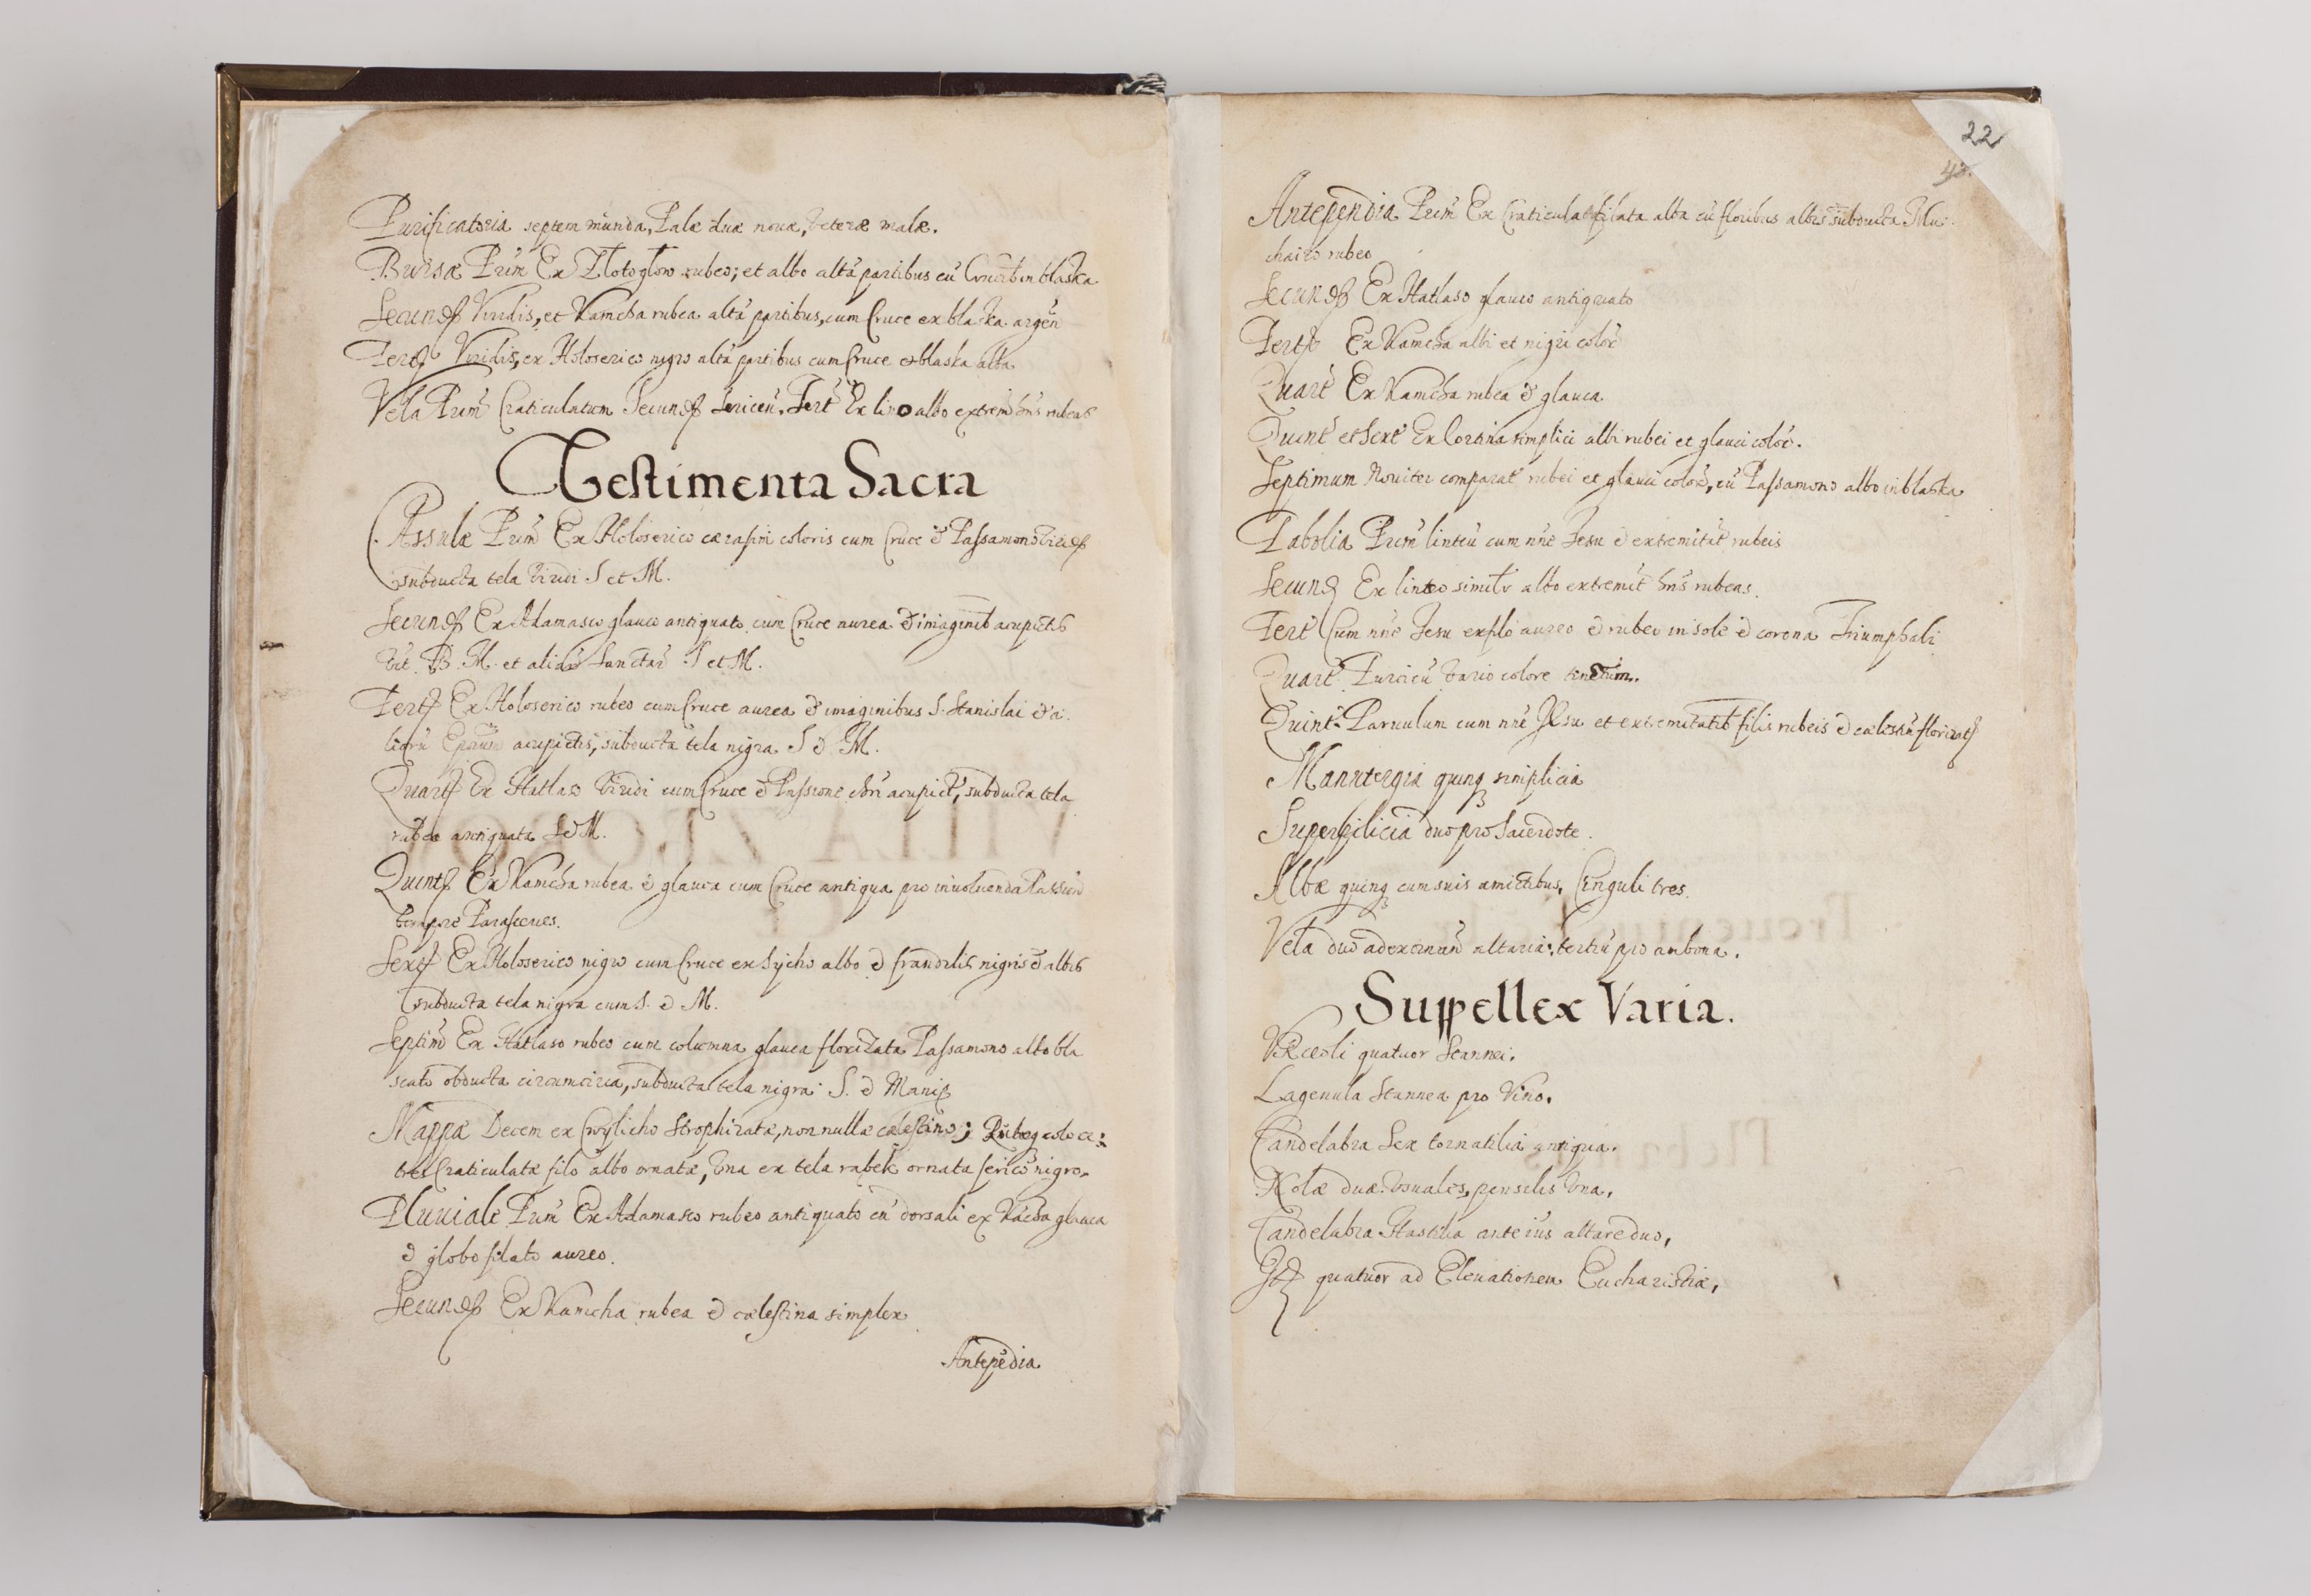 Purificatoria septem munda, Palæ duæ novæ, veteræ malæ.
Bursæ Prim̃ Ex Złotogłow rubeo; et albo altã partibus cũ Cruce in blaska
Secund Viridis, et Kamcha rubea altã partibus, cum Cruce ex blaska argen
Tert Viridis, ex Holoserico nigro altã partibus cum Cruce ex blaska alba
Vela Prim̃ Craticulatum Secund sericeũ. Tert Ex lino albo extrem hñs rubeas
Vestimenta Sacra
Cassulæ Prim̃ Ex Holoserico cerasini coloris cum Cruce et Passamono virid
subducta tela viridi S et M.
Secund Ex Adamasco glauco antiquato cum Cruce aurea et imaginib acupictis
vit B. M. et aliar Sanctar S et M.
Tert Ex Holoserico rubeo cum Cruce aurea et imaginibus S. Stanislai et a
liorũ acupictis, subducta tela nigra S et M.
Quart Ex Hatlaso viridi cum Cruce et Passione acupict, subducta tela
rubea antiquata S et M.
Quint Ex Kamcha rubea et glauca cum Cruce antiqua pro involvenda Passion
tempore Parasceves.
Sext Ex Holoserico nigro cum Cruce ex Sycho albo et frandzlis nigris et albis
subducta tela nigra cum S. et M.
Septim̃ Ex Hatlaso rubeo cum columna glauca florizata Passamono albo bla
scato obducta circumcirca, subducta tela nigra S. et Manip
Mappæ Decem ex Cwylicho Strophizatæ, nonnullæ cælestino;
tres Craticulatæ filo albo ornatæ, Una ex tela rabek ornata serico nigro.
Pluviale Prim̃ Ex Adamasco rubeo antiquato cũ dorsali ex Kãcha glauca
et globo filato aureo.
Secund Ex Kamcha rubea et cælestina simplex
Antepẽdia
22
Antependia Prim̃ Ex Craticula filata alba cũ floribus albis subducta Mu
chairo rubeo
Secund Ex Hatlaso glauco antiquato
Tert Ex Kamcha albi et nigri color
Quart Ex Kamcha rubea et glauca
Quint et Sext Ex Cortina simplici albi rubei et glauci color.
Septimum Noviter comparat rubei et glauci color, cũ Passamono albo in blaska
Pabolia Prim̃ linteũ cum nñe Jesu et extremitat rubeis
Secund Ex linteo simil albo extremit hñs rubeas.
Tert Cum nñe Jesu exfilo aureo et rubeo in sole et corona Triumphali
Quart Turcicũ vario colore tinctum.
Quint Parvulum cum nñe Jesu et extremitatib filis rubeis et cælestin florizat
Manutergia quinq simplicia
Superpilicia duo pro Sacerdote.
Albæ quinq cum suis amictibus, Cinguli tres.
Vela duo ad exornan altaria, tertiũ pro ambona.
Suppellex Varia.
Vrceoli quatuor Stannei.
Lagenula Stannea pro Vino.
Candelabra Sex tornatilia antiqua.
Nolæ duæ Vsuales, pensilis Vna.
Candelabra Hastilia ante ius altare duo,
Itẽ quatuor ad Elevationem Eucharistiæ,